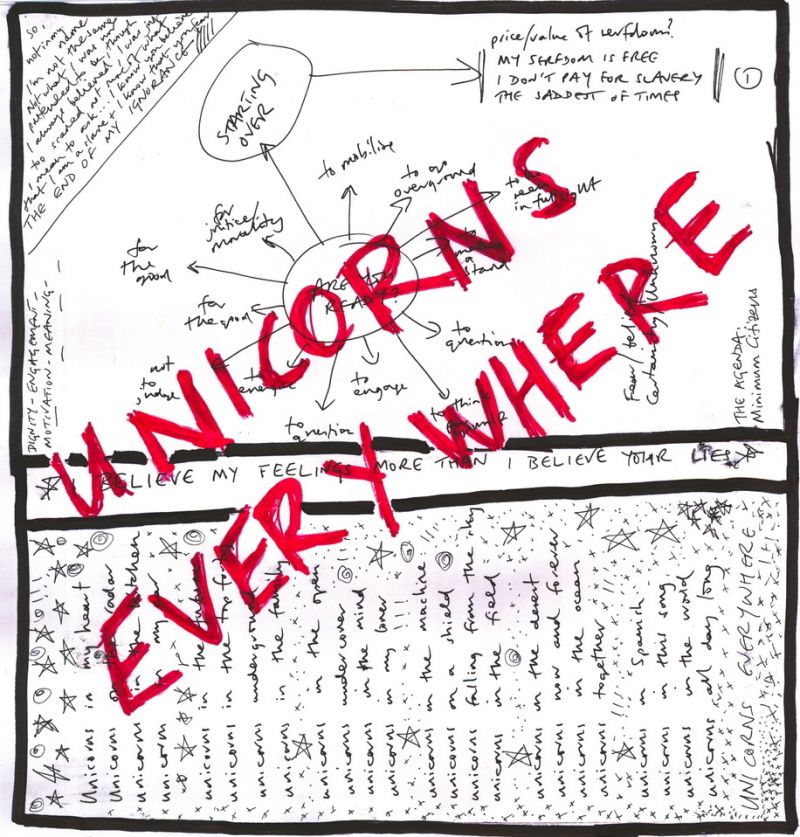 So,
not in my name
I'm not the same
Not what I was
pretended to be though
I always believed I was not
too scared
mean to ask... I know you believe
that I am a slave + I know that you fear
THE END OF MY IGNORANCE !!!!!
STARTING
OVER
price/value of serfdom?
MY SERFDOM IS FREE
I DON'T PAY FOR SLAVERY
THE SADDEST OF TIMES
1
to mobilise
to go
overground
to be
seen
in full light
for
justice/
morality
for
the
good
ARE YOU
READY?
to
make
a
stand
for
the good
to
question
not
to
judge
to
to
engage
to
question
to think
DIGNITY - ENGAGEMENT -
MOTIVATION - MEANING -
Certainty/Unknown
THE AGENDA:
Minimum Citizens
I BELIEVE MY FEELINGS MORE THAN I BELIEVE YOUR LIES
UNICORNS
EVERYWHERE
Unicorns in my heart
Unicorns radar
unicorns in the kitchen
unicorns in my
unicorns in the
unicorns in the top
unicorns underground
unicorns in the family
unicorns in the open
unicorns undercover
unicorns in the mind
unicorns in my lover
unicorns in the machine
unicorns on a shield
unicorns falling from the sky
unicorns in the field
unicorns in the desert
unicorns now and forever
unicorns in the ocean
unicorns together
unicorns in Spanish
unicorns in this song
unicorns in the world
unicorns all day long
UNICORNS EVERYWHERE